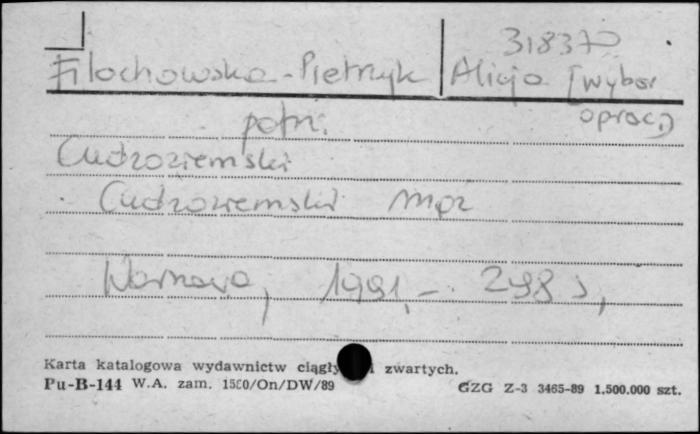 318370
Filochowska-Pietrzyk Alicja [wybór
oprac.]
patrz:
Cudzoziemski
Cudzoziemski mąż
Warszawa, 1991,- 298 s,
Karta katalogowa wydawnictw ciągły i zwartych.
Pu-B-144 W.A. zam. 1580/On/DW/89 GZG Z-3 3465-89 1.500.000 szt.